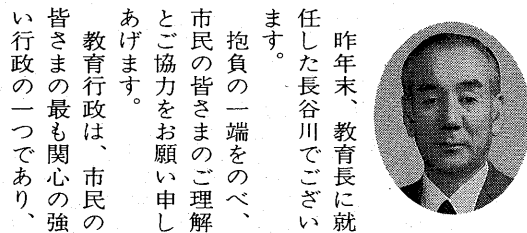 昨年末、教育長に就
任した長谷川でござい
ます。
抱負の一端をのべ、
市民の皆さまのご理解
とご協力をお願い申し
あげます。
教育行政は、市民の
皆さまの最も関心の強
い行政の一つであり、